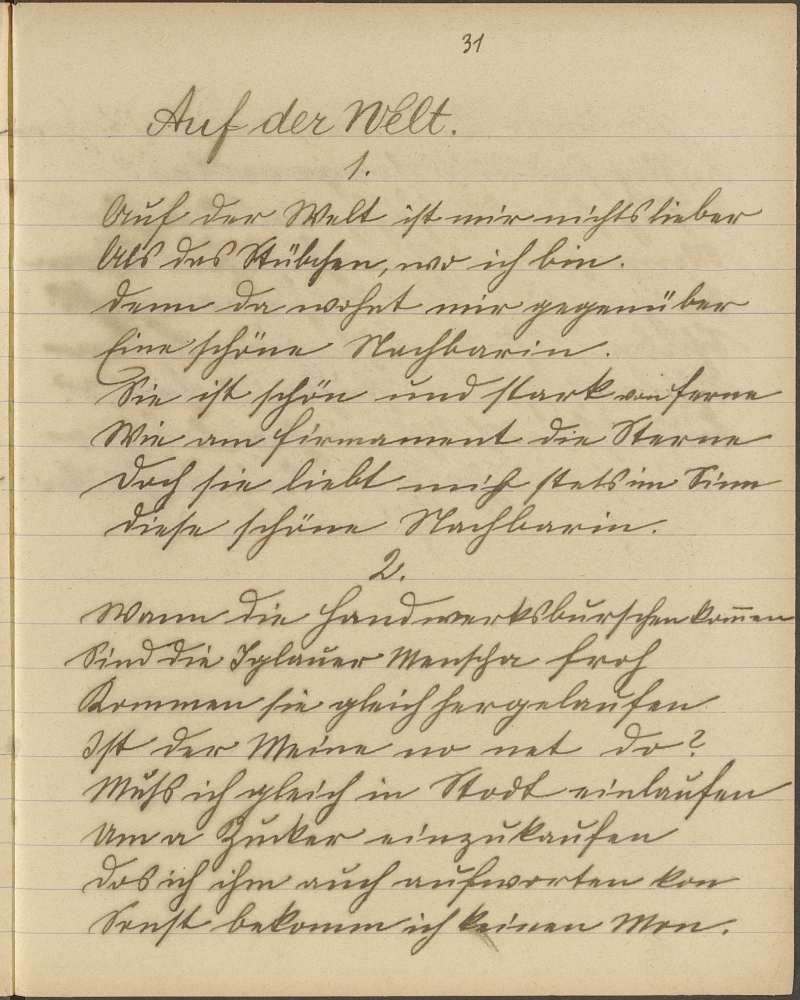 31
Auf der Welt.
1.
Auf der Welt ist mir nichts lieber
Als das Stübchen, wo ich bin.
Denn da wohnt mir gegenüber
Eine schöne Nachbarin.
Sie ist schön und stark von ferne
Wie am Firmament die Sterne
Doch sie liebt mich stets im Sinn
Diese schöne Nachbarin.
2.
Wann die Handwerksburschen kom̅en
Sind die Iglauer Menscha froh
Kommen sie gleich hergelaufen
Ist der Meine no net do?
Muß ich gleich in Stodt einlaufen
Um a Zucker einzukaufen
Dos ich ihm auch aufworten kon
Sonst bekomm ich keinen Mon.